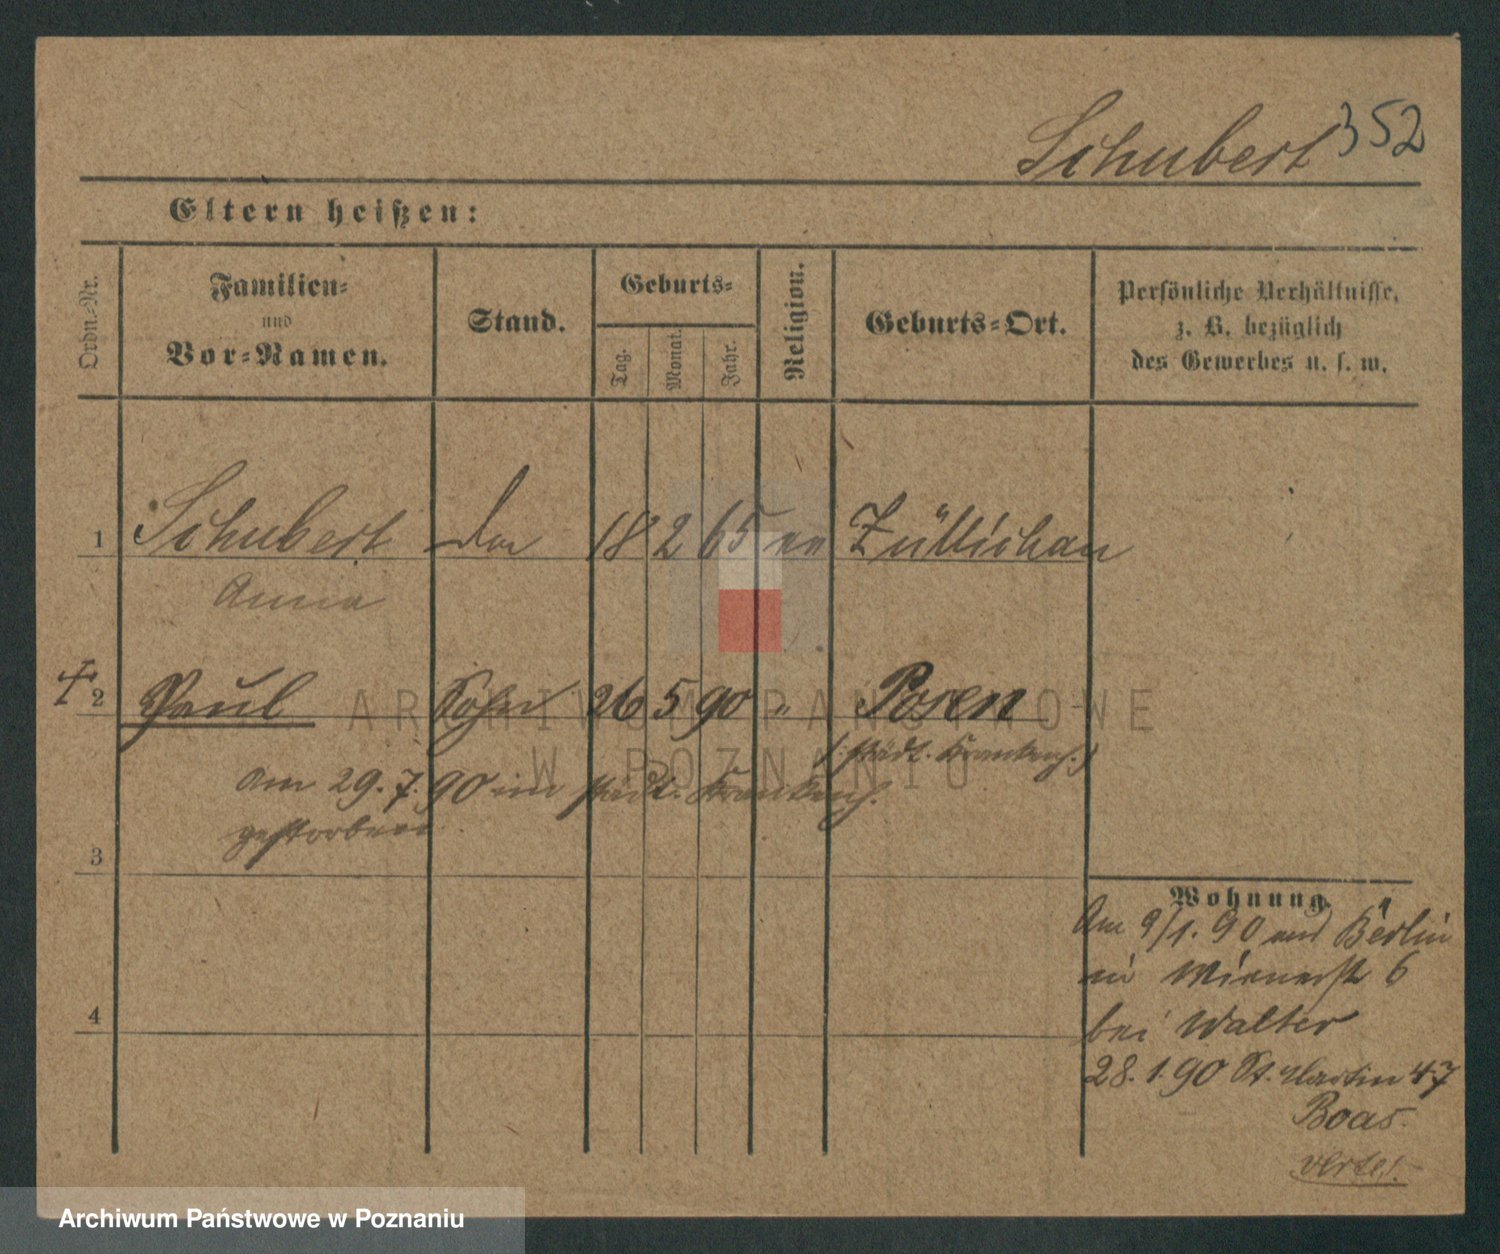 Schubert 352
Eltern heißen:
Ordn.-Nr.
Familien-
und
Vor-Namen.
Stand.
Geburts-
Tag.
Monat.
Jahr.
Religion.
Geburts-Ort.
Persönliche Verhältnisse,
z. B. bezüglich
des Gewerbes u. s. w.
1 Schubert 18 2 65 Züllichau
Anna
2 Paul Sohn 26 5 90 " Posen
(: städt. Krankenh. :)
am 29.7.90 im städt. Krankenh.
gestorben
3
Wohnung.
Am 9/1. 90 aus Berlin
Wienerst 6
4
bei Walter
28.1.90 St. Martin 47
Boas.
verte!
ARCHIWUM PAŃSTWOWE
W POZNANIU
Archiwum Państwowe w Poznaniu